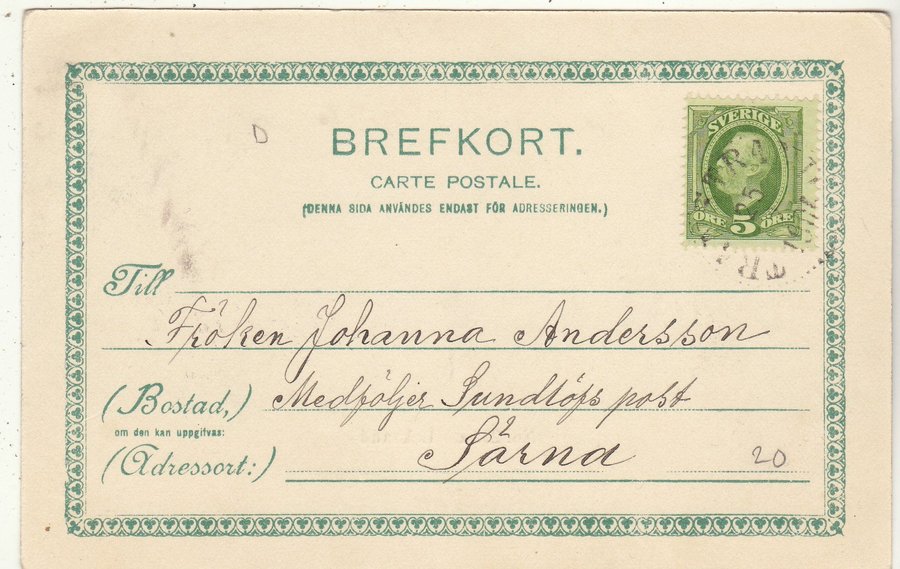 D
BREFKORT.
CARTE POSTALE.
(DENNA SIDA ANVÄNDES ENDAST FÖR ADRESSERINGEN.)
SVERIGE
ÖRE 5 ÖRE
Till
Fröken Johanna Andersson
(Bostad,) Medföljer Sundlöfs post
om den kan uppgifvas:
(Adressort:) Särna
20